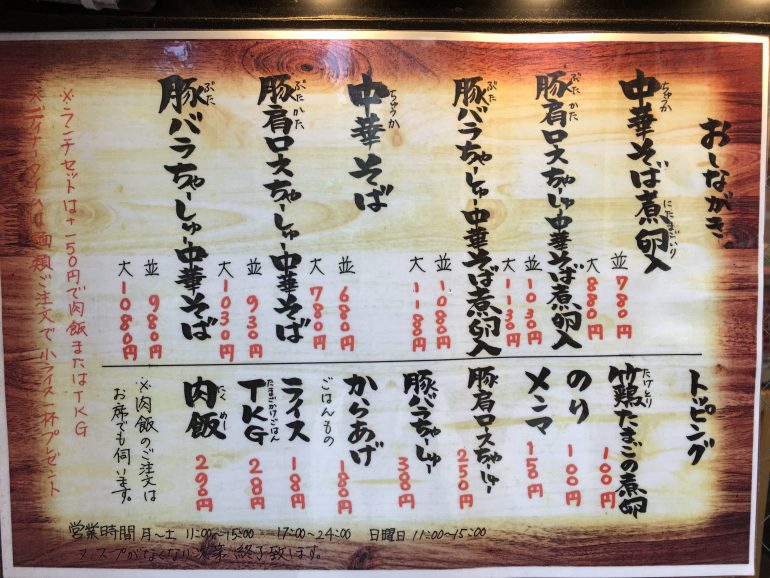 おしながき
中華そば煮卵入
ちゅうか
にたまごいり
並 780円
大 880円
豚肩ロースちゃーしゅー中華そば煮卵入
ぶた かた
並 1030円
大 1130円
豚バラちゃーしゅー中華そば煮卵入
ぶた
並 1080円
大 1180円
中華そば
ちゅうか
並 680円
大 780円
豚肩ロースちゃーしゅー中華そば
ぶた かた
並 930円
大 1030円
豚バラちゃーしゅー中華そば
ぶた
並 980円
大 1080円
※ランチセットは+150円で肉飯またはTKG
※ディナータイムは麺類ご注文で小ライス一杯プレゼント
トッピング
竹鶏たまごの煮卵
たけとり
100円
のり
100円
メンマ
150円
豚肩ロースちゃーしゅー
250円
豚バラちゃーしゅー
300円
からあげ
180円
ごはんもの
ライス
TKG
たまごかけごはん
肉飯
にくめし
290円
※肉飯のご注文は
お席でも伺います。
営業時間 月〜土 11:00〜15:00 17:00〜24:00 日曜日 11:00〜15:00
スープがなくなり次第、終了致します。